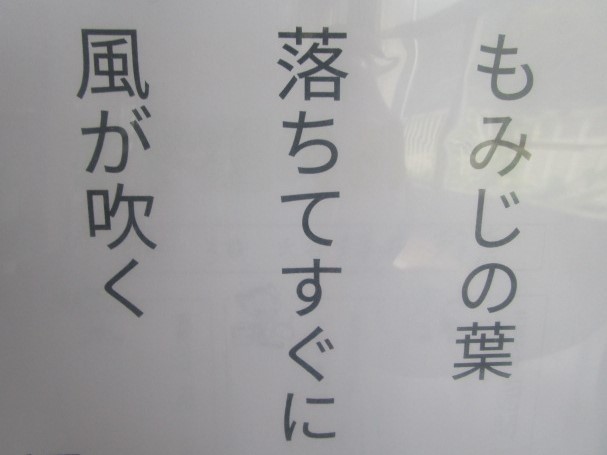 もみじの葉
落ちてすぐに
風が吹く